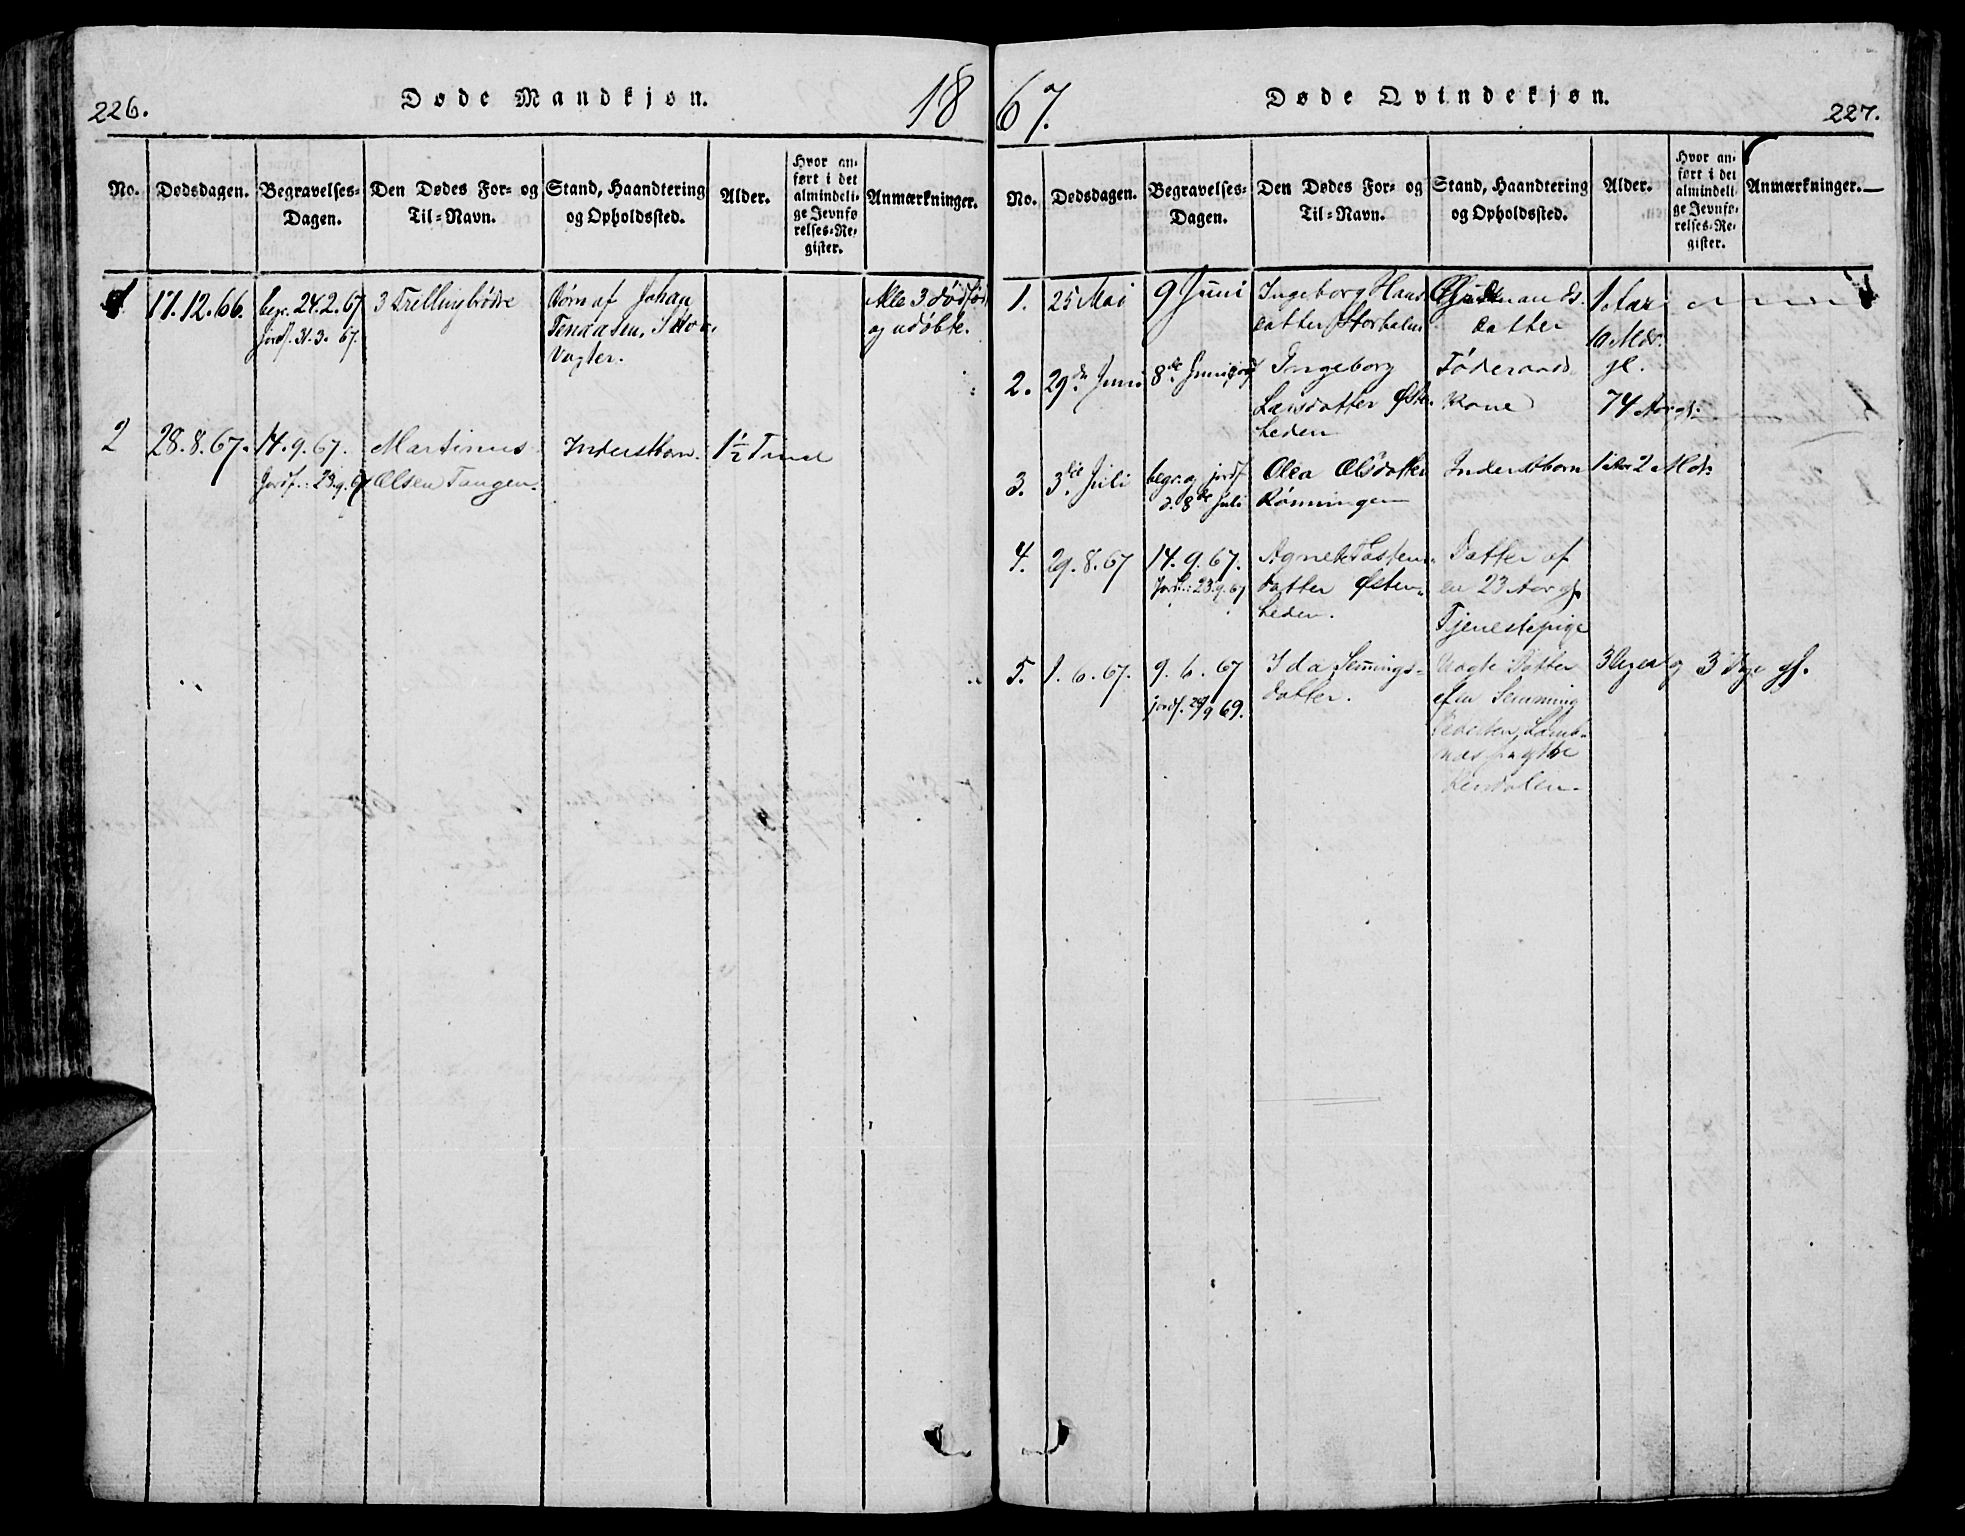 226.
Døde Mandkjøn.
18
No.
Dødsdagen.
Begravelses-
Dagen.
Den Dødes For- og
Til-Navn.
Stand, Haandtering
og Opholdssted.
Alder.
Hvor an-
ført i det
almindeli-
ge Jevnfø-
relses-Re-
gister.
Anmærkninger.
1
17.12.66.
begr. 24.2.67
Jordf. 31.3.67.
3 Trellingbrødre
Børn af Johan
Vogter.
Alle 3 dødfødt
og udøbte.
2
28.8.67.
14.9.67.
Jordf.: 23.9.67
Martinus
Olsen Tangen.
Inderstbarn.
1½ Time
67.
Døde Qvindekjøn.
227.
No.
Dødsdagen.
Begravelses-
Dagen.
Den Dødes For- og
Til-Navn.
Stand, Haandtering
og Opholdssted.
Alder.
Hvor an-
ført i det
almindeli-
ge Jevnfø-
relses-Re-
gister.
Anmærkninger.
1.
25 Mai
9 Juni
Ingeborg Hans
datter Storholm
datter
1 Aar
10 Mdr.
gl.
2.
29de Juni
8de Juni
Ingeborg
Larsdatter Østen-
heden
Føderaads
Kone
74 Aar gl.
3.
3die Juli
begr. og jordf
d. 8de Juli
Olea Olsdatter
Rønningen
Inderstbarn
1 Aar 2 Mdr
4.
29.8.67
14.9.67.
Jordf.: 23.9.67
datter Østen-
heden.
Datter af
en 23 Aar gl.
Tjenestepige
5.
1.6.67.
9.6.67
jordf. 26/9 69.
Ida Semings-
datter.
Uægte Datter
af en Semming
3 Uger og 3 Dage gl.